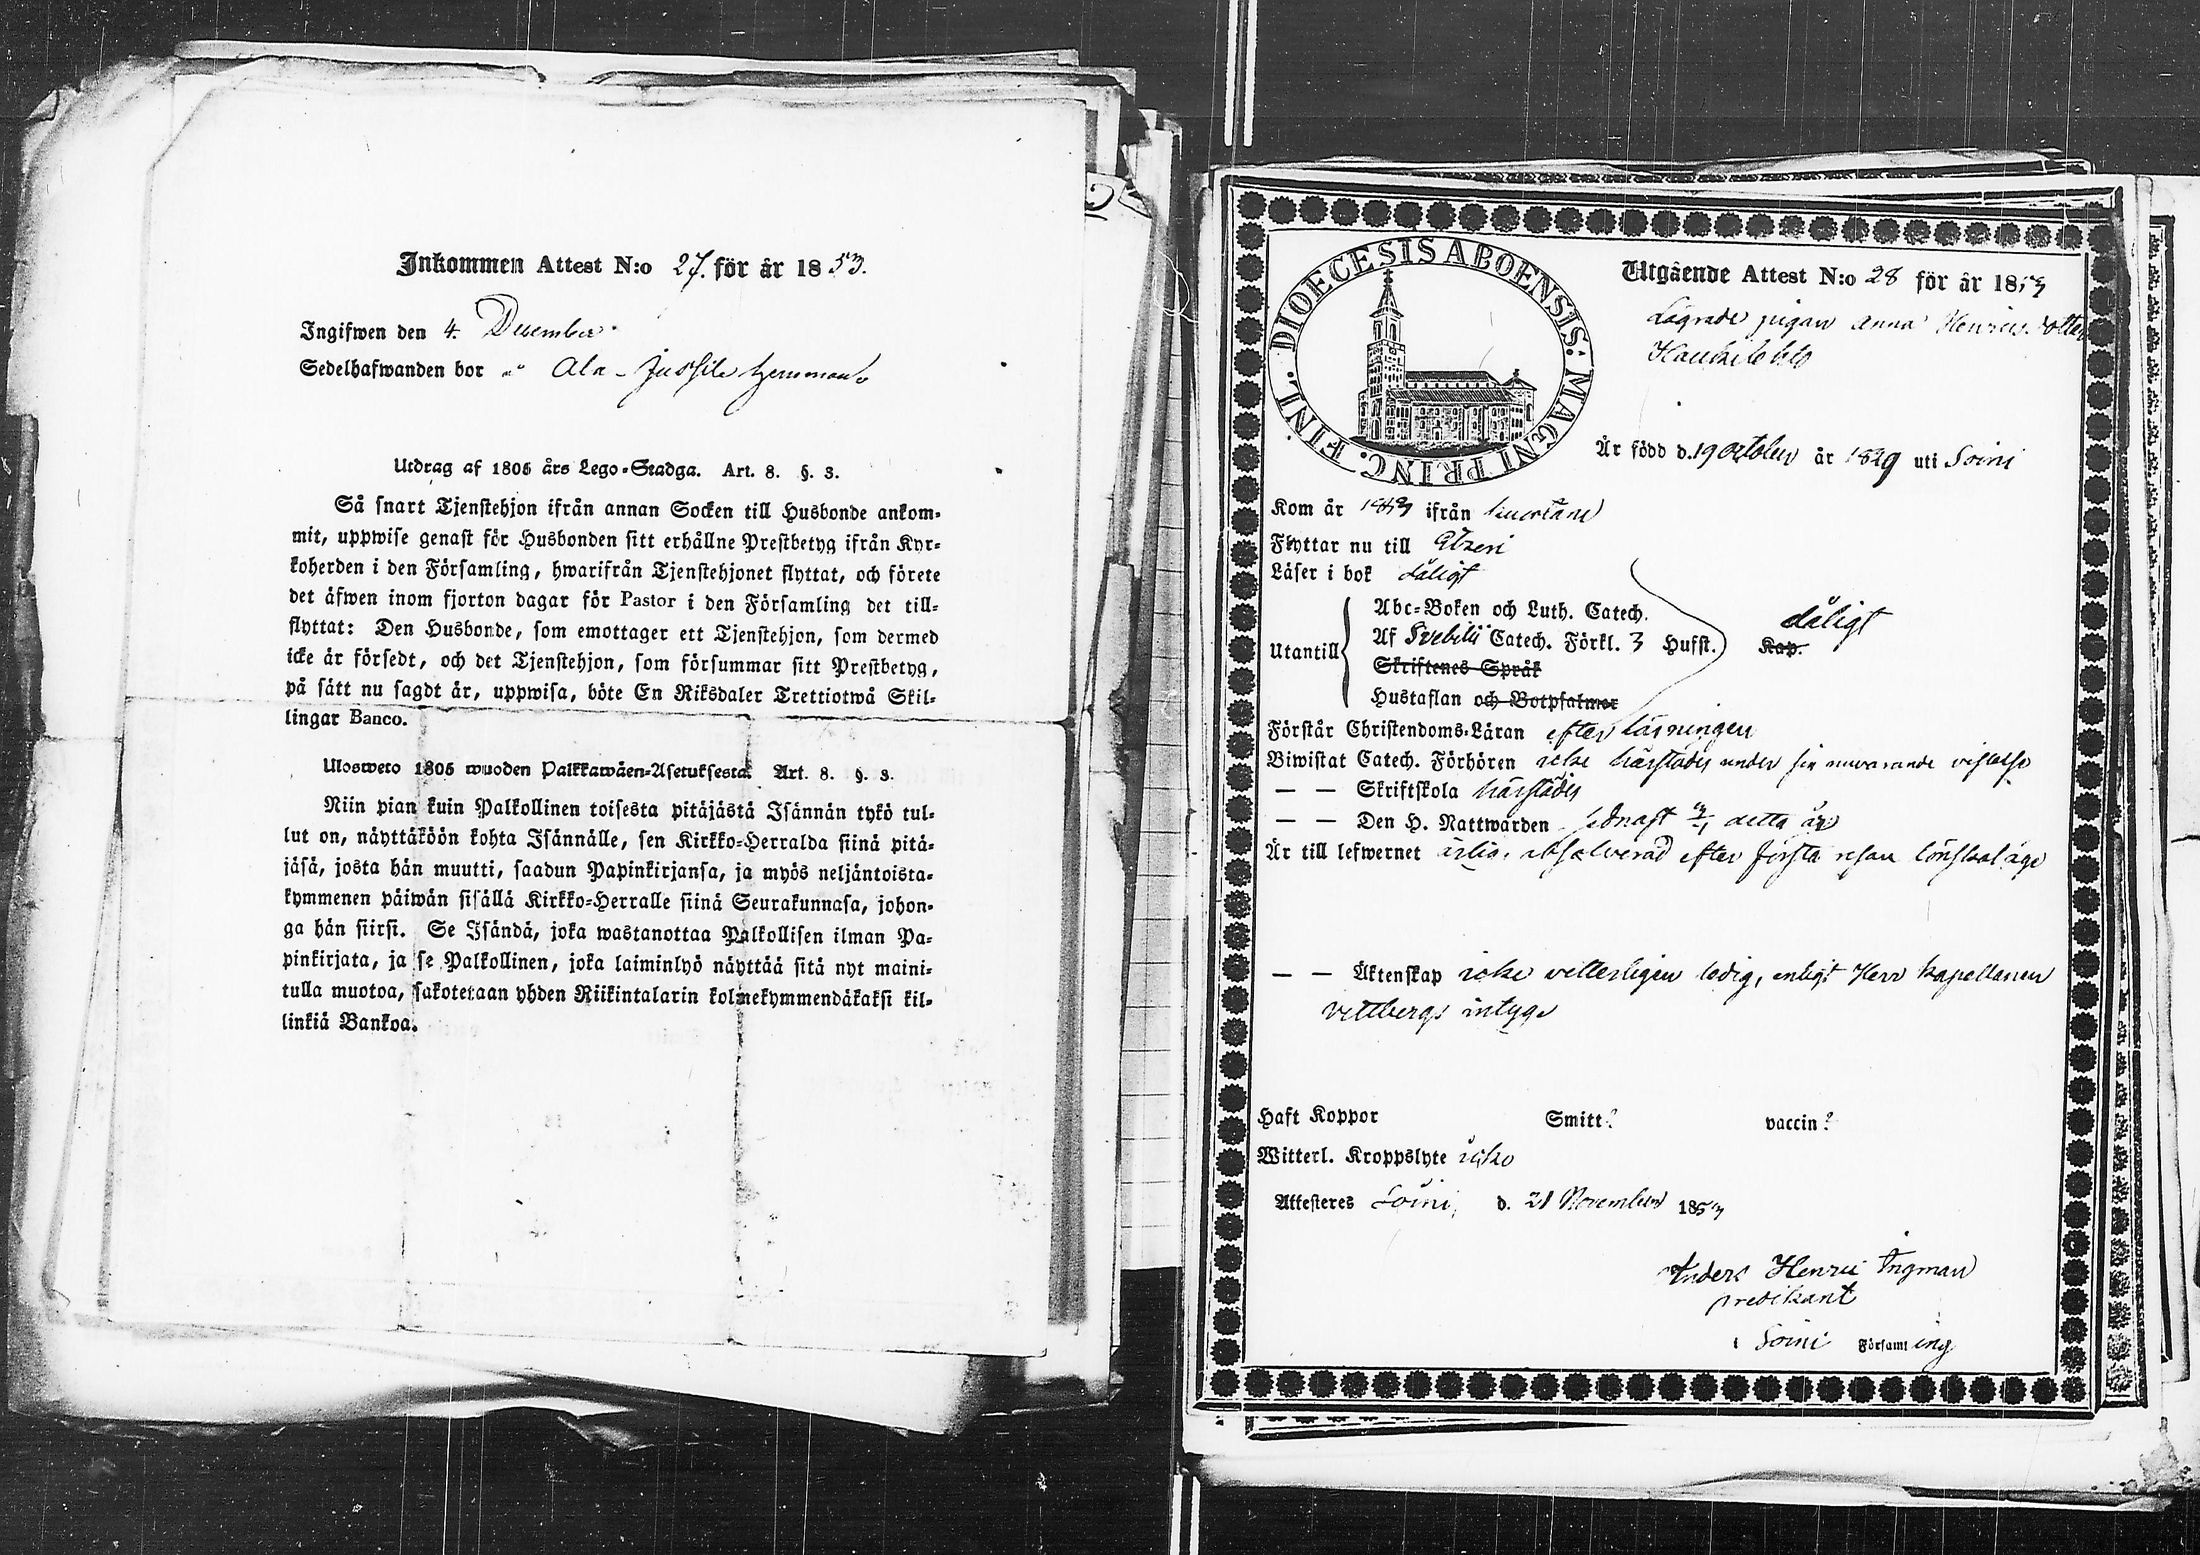 Inkommen Attest N:o 27. för år 1853.
Ingifwen den 4. December
Sedelhafwanden bor å Ala-Jussila hemman
Utdrag af 1805 års Lego-Stadga. Art. 8. §. 3.
Så snart Tjenstehjon ifrån annan Socken till Husbonde ankom-
mit, uppwise genast för Husbonden sitt erhållne Prestbetyg ifrån Kyr-
koherden i den Församling, hwarifrån Tjenstehjonet flyttat, och förete
det äfwen inom fjorton dagar för Pastor i den Församling det till-
flyttat: Den Husbonde, som emottager ett Tjenstehjon, som dermed
icke är försedt, och det Tjenstehjon, som försummar sitt Prestbetyg,
på sätt nu sagdt är, uppwisa, böte En Riksdaler Trettiotwå Skil-
lingar Banco.
Ulosweto 1805 wuoden Palkkawäen-Asetuksesta. Art. 8. §. 3.
Niin pian kuin Palkollinen toisesta pitäjästä Isännän tykö tul-
lut on, näyttäköön kohta Isännälle, sen Kirkko-Herralda siinä pitä-
jäsä, josta hän muutti, saadun Papinkirjansa, ja myös neljäntoista-
kymmenen päiwän sisällä Kirkko-Herralle siinä Seurakunnasa, johon-
ga hän siirsi. Se Isändä, joka wastanottaa Palkollisen ilman Pa-
pinkirjata, ja se Palkollinen, joka laiminlyö näyttää sitä nyt maini-
tulla muotoa, sakotetaan yhden Riikintalarin kolmekymmendäkaksi kil-
linkiä Bankoa.
DIOECESIS ABOENSIS: MAGNI PRINC. FINL.
Utgående Attest N:o 28 för år 1853
Lägrade pigan Anna Henricsdotter
Är född d. 19 October år 1829 uti Soini
Kom år 1853 ifrån
Flyttar nu till Etzeri
Läser i bok dåligt
Utantill
Abc-Boken och Luth. Catech.
Af Svebilii Catech. Förkl. 3 Hufst. Kap. dåligt
Skriftenes Språk
Hustaflan och Botpsalmer
Förstår Christendoms-Läran efter läsningen
Biwistat Catech. Förhören icke härstädes under sin nuvarande vistelse
— — Skriftskola härstädes
— — Den H. Nattwarden sednast detta år
Är till lefwernet ärlig, absolverad efter första resan lönskaläge
— — Äktenskap icke vetterligen ledig, enligt Herr Kapellanen
Vettbergs intyge
Haft Koppor Smitt? vaccin?
Witterl. Kroppslyte icke
Attesteres Soini, d. 21 November 1853
Anders Henric Ingman
predikant
i Soini Församling